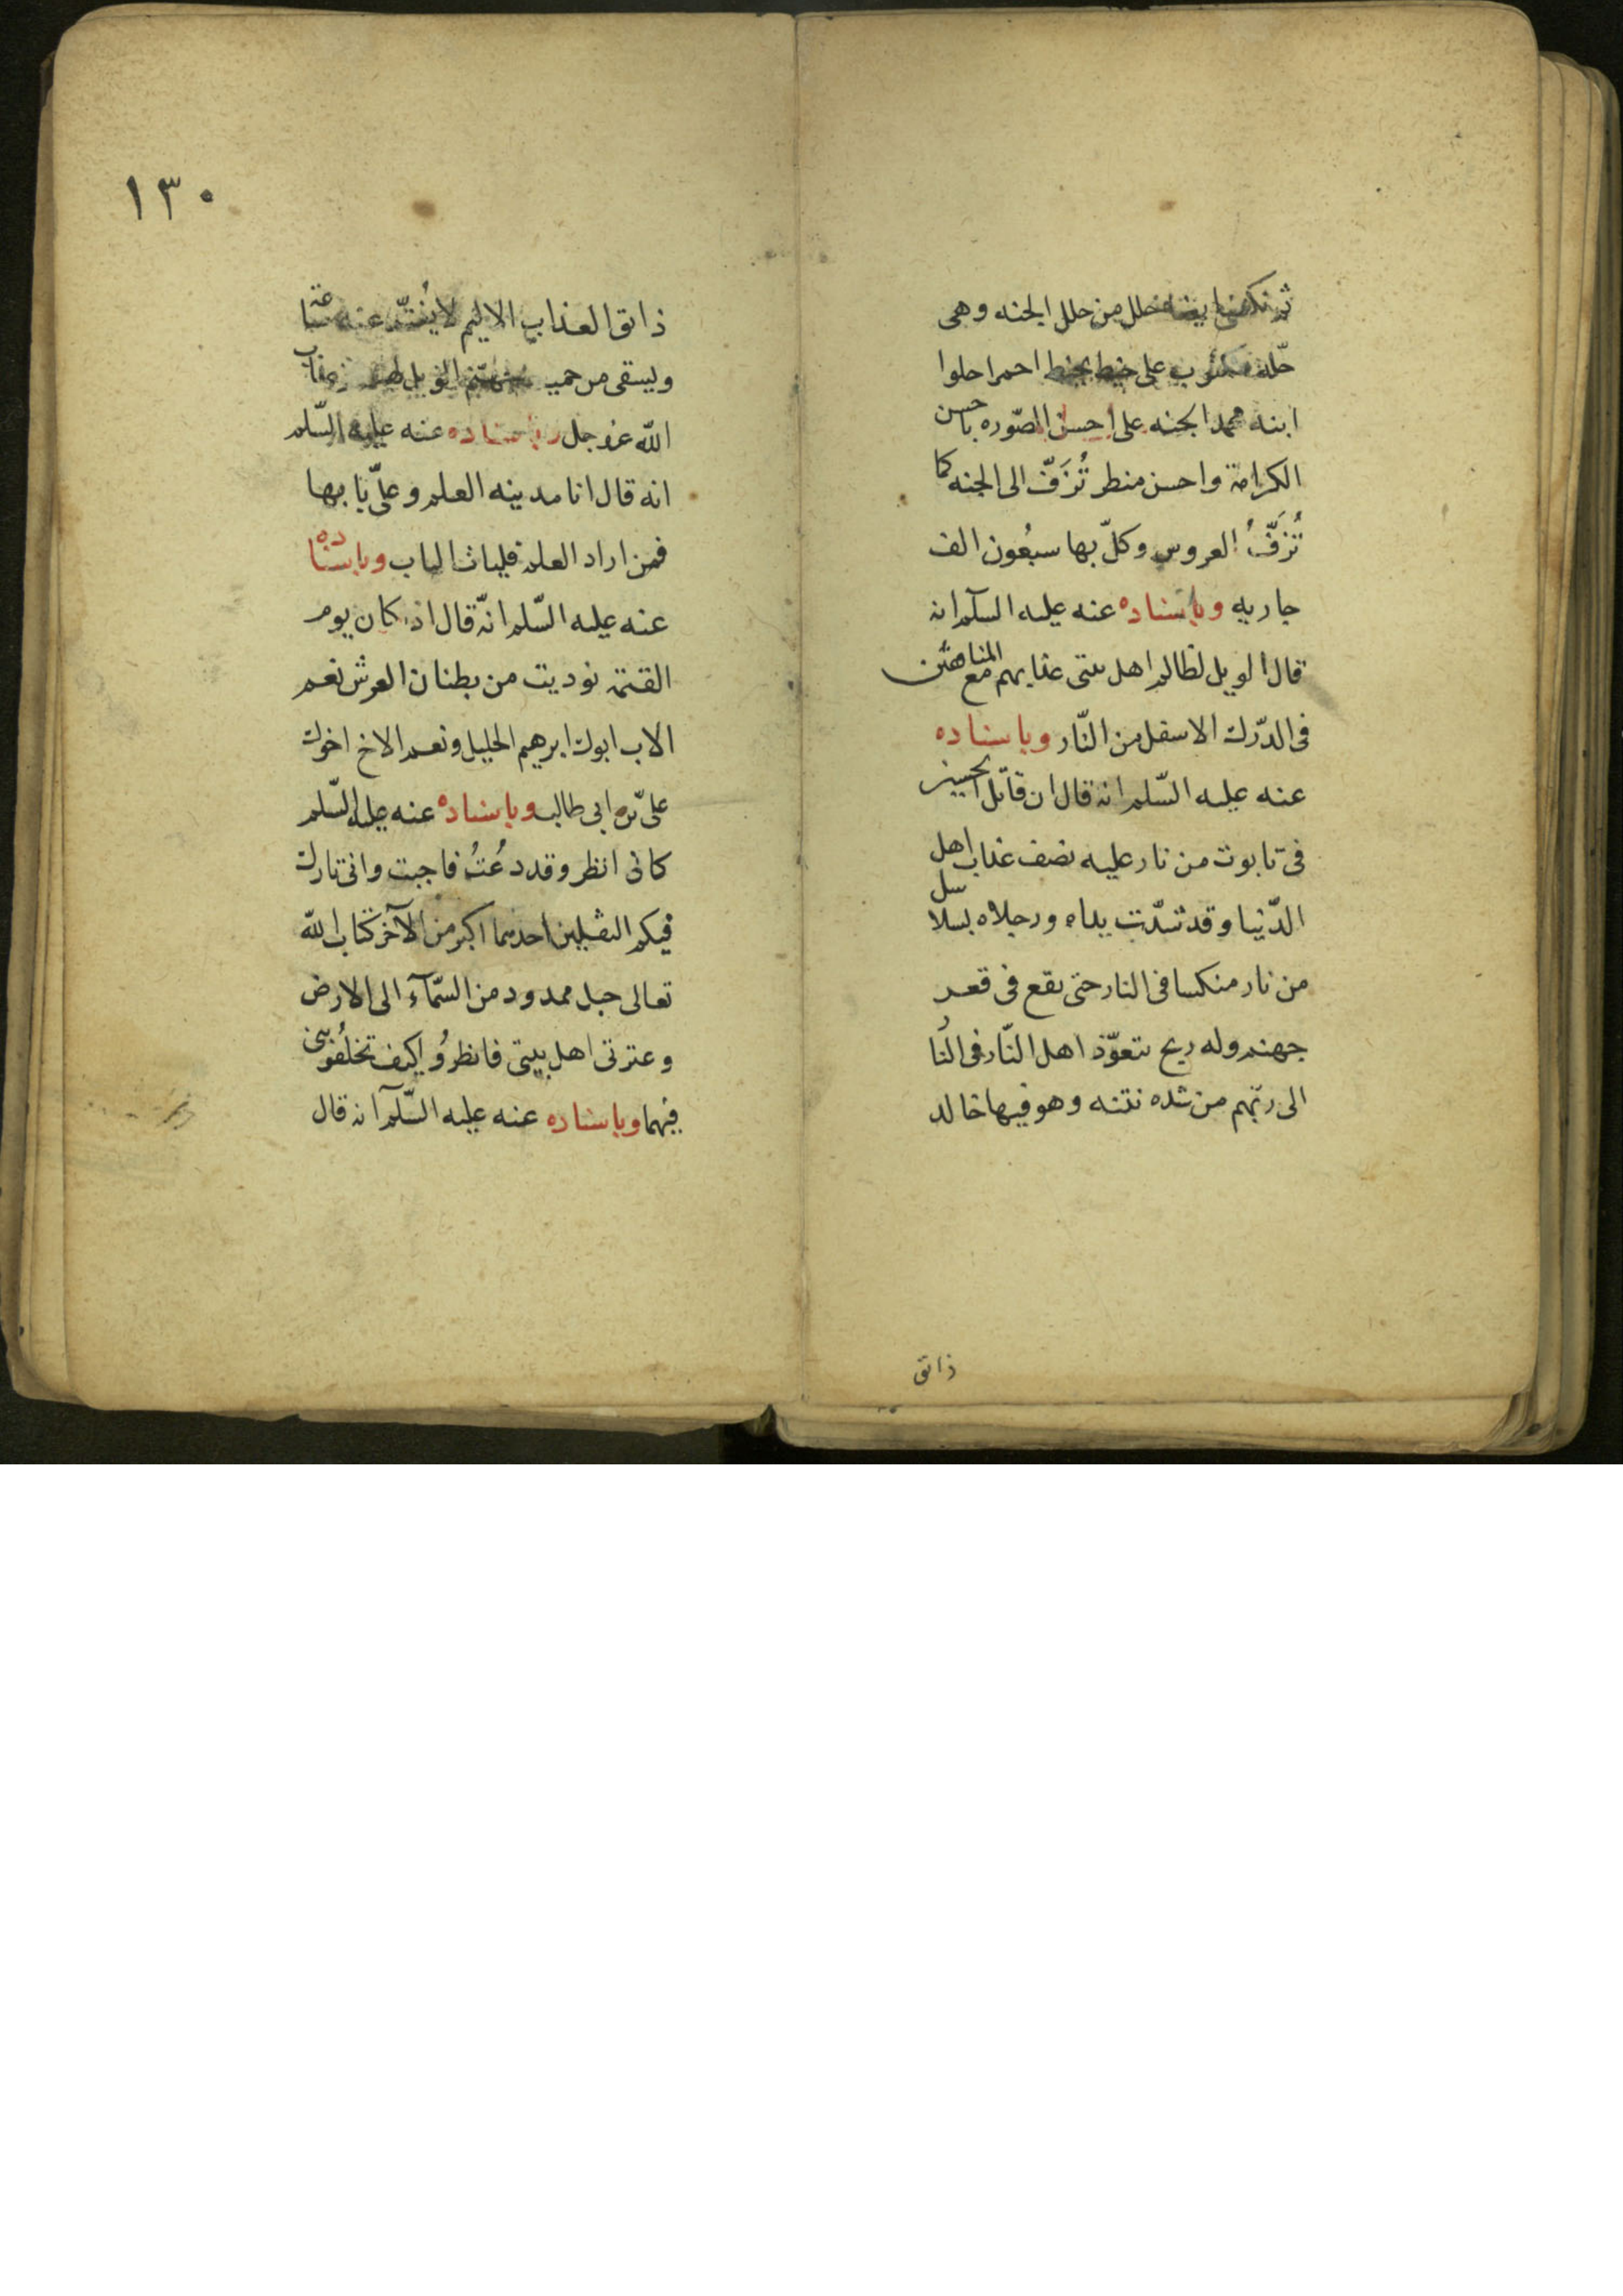 ثم تكسى ايضا حلل من حلل الجنه وهى
حلّه مكتوب على بخط احمر ادخلوا
ابنه محمد الجنه على احسن الصّوره باحسن
الكرامة واحسن منظر تُزَفّ الى الجنه كما
تُزَفّ العروس وكلّ بها سبعُون الف
جاريه وباسناده عنه عليه السلم انه
قال الويل لظالم اهل بيتى عذابهم مع المنافقين
فى الدّرك الاسفل من النّار وباسناده
عنه عليه السّلم انه قال ان قاتل الحسين
فى تابوت من نار عليه نصف عذاب اهل
الدّنيا وقد شدّت يداه ورجلاه بسلاسل
من نار منكسا فى النار حتى يقع فى قعر
جهنم وله ريح يتعوّذ اهل النّار فى النّار
الى ربّهم من شده نتنه وهو فيها خالد
ذائق
١٣٠
ذائق العذاب الاليم لا يُفتّر عنه ساعة
ويسقى من حميم جهنّم الويل لهم من عذاب
اللّه عز وجل وباسناده عنه عليه السّلم
انه قال انا مدينه العلم وعلىّ بابها
فمن اراد العلم فليات الباب وباسناده
عنه عليه السّلم انّه قال اذا كان يوم
القيمة نوديت من بطنان العرش نعم
الاب ابوك ابرهيم الخليل ونعم الاخ اخوك
علىّ بن ابى طالب وباسناده عنه عليه السّلم
كانى انظر وقد دُعيتُ فاجبت وانى تارك
فيكم الثقلين احدهما اكبر من الآخر كتاب اللّه
تعالى حبل ممدود من السّمآء الى الارض
وعترتى اهل بيتى فانظرُوا كيف تخلُفُونى
فيهما وباسناده عنه عليه السّلم انه قال